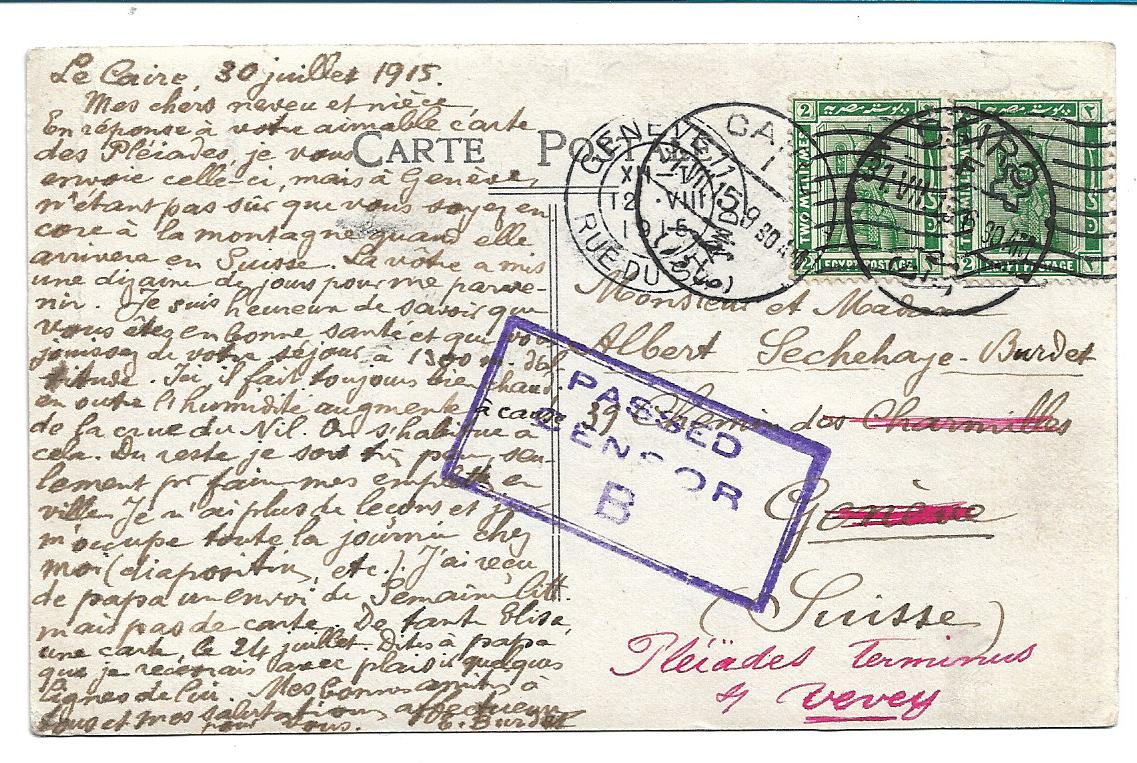 Le Caire, 30 juillet 1915.
Mes chers neveu et nièce,
En réponse à votre aimable carte
des Pléiades, je vous
envoie celle-ci, mais à Genève,
n'étant pas sûr que vous soyez en
core à la montagne quand elle
arrivera en Suisse. La vôtre a mis
une dizaine de jours pour me parve-
nir. Je suis heureux de savoir que
vous êtes en bonne santé et que vous
jouissez de votre séjour à 1300 m d'al
titude. Ici il fait toujours bien chaud,
en outre l'humidité augmente à cause
de la crue du Nil. On s'habitue à
cela. Du reste je sors très peu, seu-
lement pr faire mes emplettes en
ville. Je n'ai plus de leçons et je
m'occupe toute la journée chez
moi (diapositives, etc.). J'ai reçu
de papa un envoi de Semaine litt.
mais pas de carte. De tante Elise,
une carte, le 24 juillet. Dites à papa
que je recevrais avec plaisir quelques
lignes de lui. Mes bonnes amitiés à
tous et mes salutations affectueuses
pour vous. E. Burdet
CARTE POST
GENEVE 1
XII-
12.VIII
1915
RUE DU
CAI
1
VII 15 9 30 AM
CAIRO
31 VII 15 9 30 AM
2
TWO MILLIEMES
EGYPT POSTAGE
2
2
TWO MILLIEMES
EGYPT POSTAGE
2
دولت مصريه
PASSED
CENSOR
B
Monsieur et Madame
Albert Sechehaye-Burdet
39 Chemin des Charmilles
Genève
(Suisse)
Pléïades Terminus
s/ Vevey